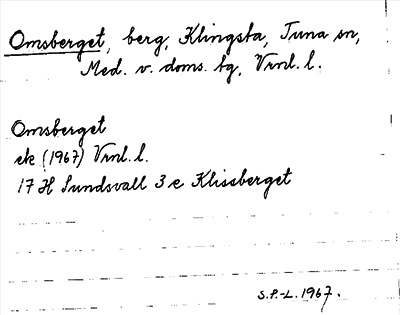 Omsberget, berg, Klingsta, Tuna sn,
Med. v. doms. tg, Vrnl. l.
Omsberget
ek (1967) Vrnl. l.
17 H Sundsvall 3 e Klissberget
S.P.-L. 1967.